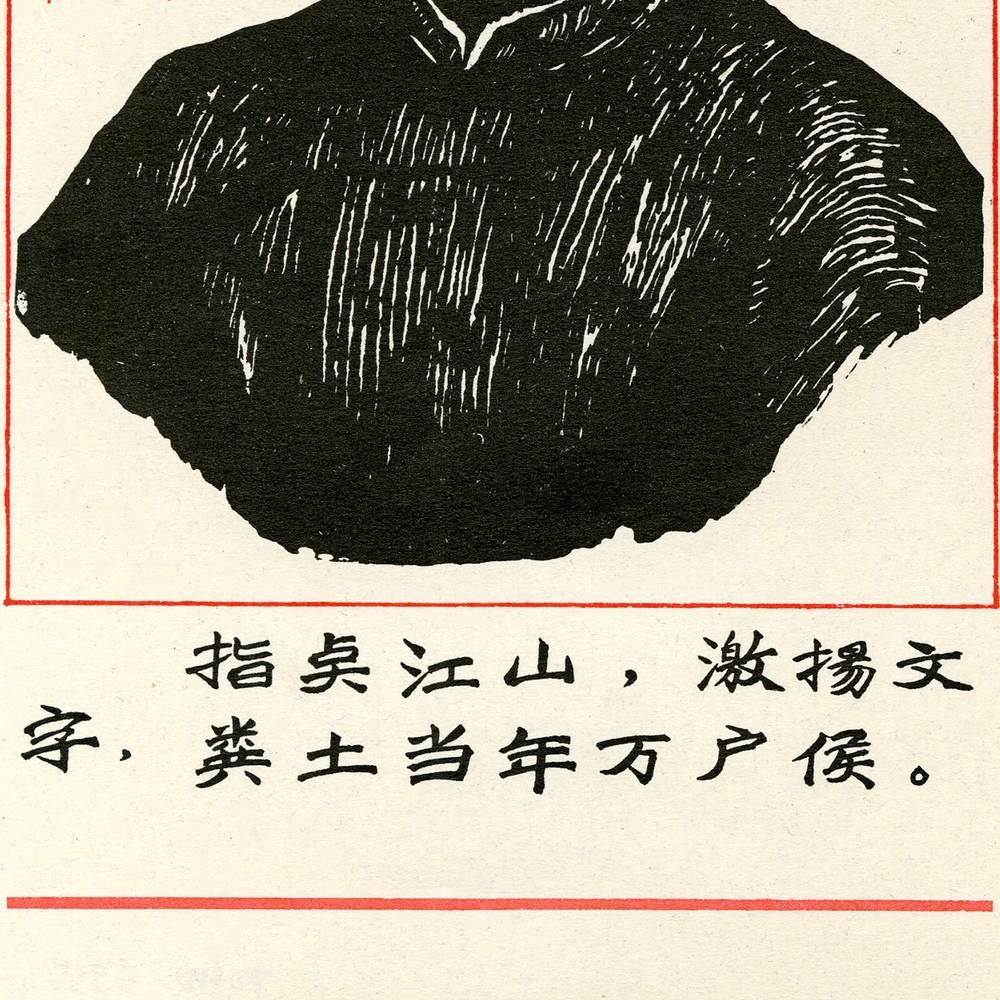 指点江山，激揚文
字，粪土当年万户侯。